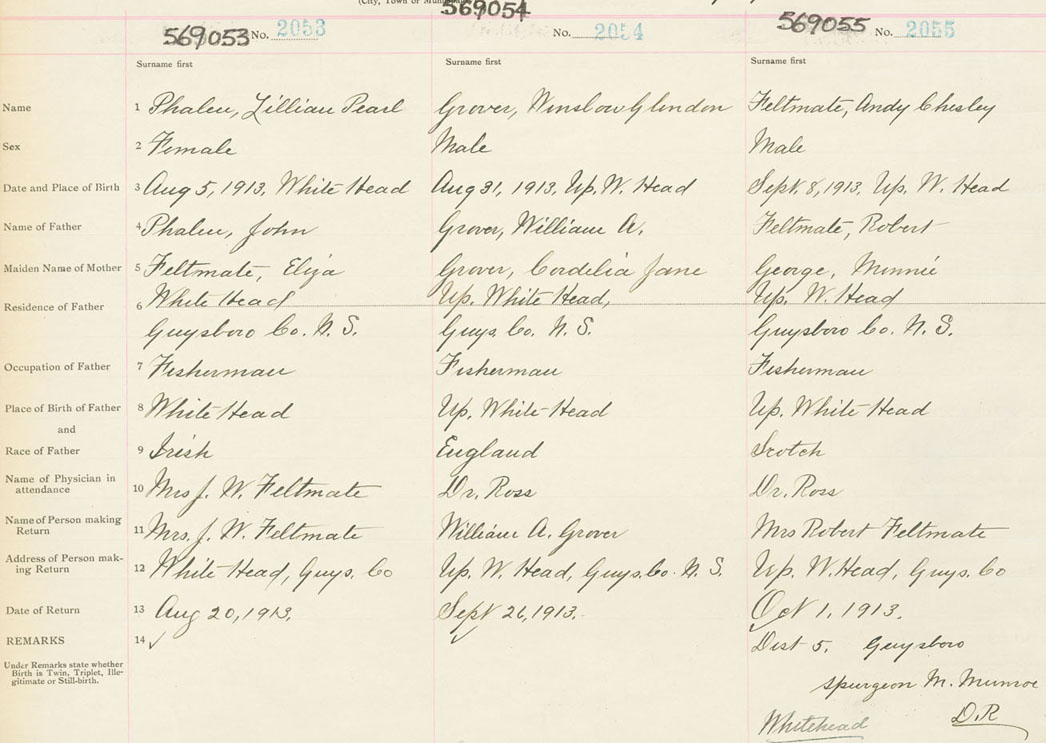 (City, Town or Mun
569053 No. 2053 569054 No. 2054 569055 No. 2055
Surname first Surname first Surname first
Name 1 Phalen, Lillian Pearl Grover, Winslow Glendon Feltmate, Andy Chesley
Sex 2 Female Male Male
Date and Place of Birth 3 Aug 5, 1913, White Head Aug 31, 1913, Up. W. Head Sept. 8, 1913, Up. W. Head
Name of Father 4 Phalen, John Grover, William A. Feltmate, Robert
Maiden Name of Mother 5 Feltmate, Eliza Grover, Cordelia Jane George, Minnie
Residence of Father 6 White Head Up. White Head, Up. W. Head
Guysboro Co. N. S. Guys. Co. N. S. Guysboro Co. N. S.
Occupation of Father 7 Fisherman Fisherman Fisherman
Place of Birth of Father 8 White Head Up. White Head Up. White Head
and
Race of Father 9 Irish England Scotch
Name of Physician in
attendance 10 Mrs J. W. Feltmate Dr. Ross Dr. Ross
Name of Person making
Return 11 Mrs. J. W. Feltmate William A. Grover Mrs Robert Feltmate
Address of Person mak-
ing Return 12 White Head, Guys. Co Up. W. Head, Guys. Co. N. S. Up. W. Head, Guys. Co
Date of Return 13 Aug 20, 1913. Sept 26, 1913. Oct 1, 1913.
REMARKS 14 ✓ ✓ Dist 5. Guysboro
Under Remarks state whether
Birth is Twin, Triplet, Ille-
gitimate or Still-birth.
Spurgeon M. Munroe
Whitehead D.R